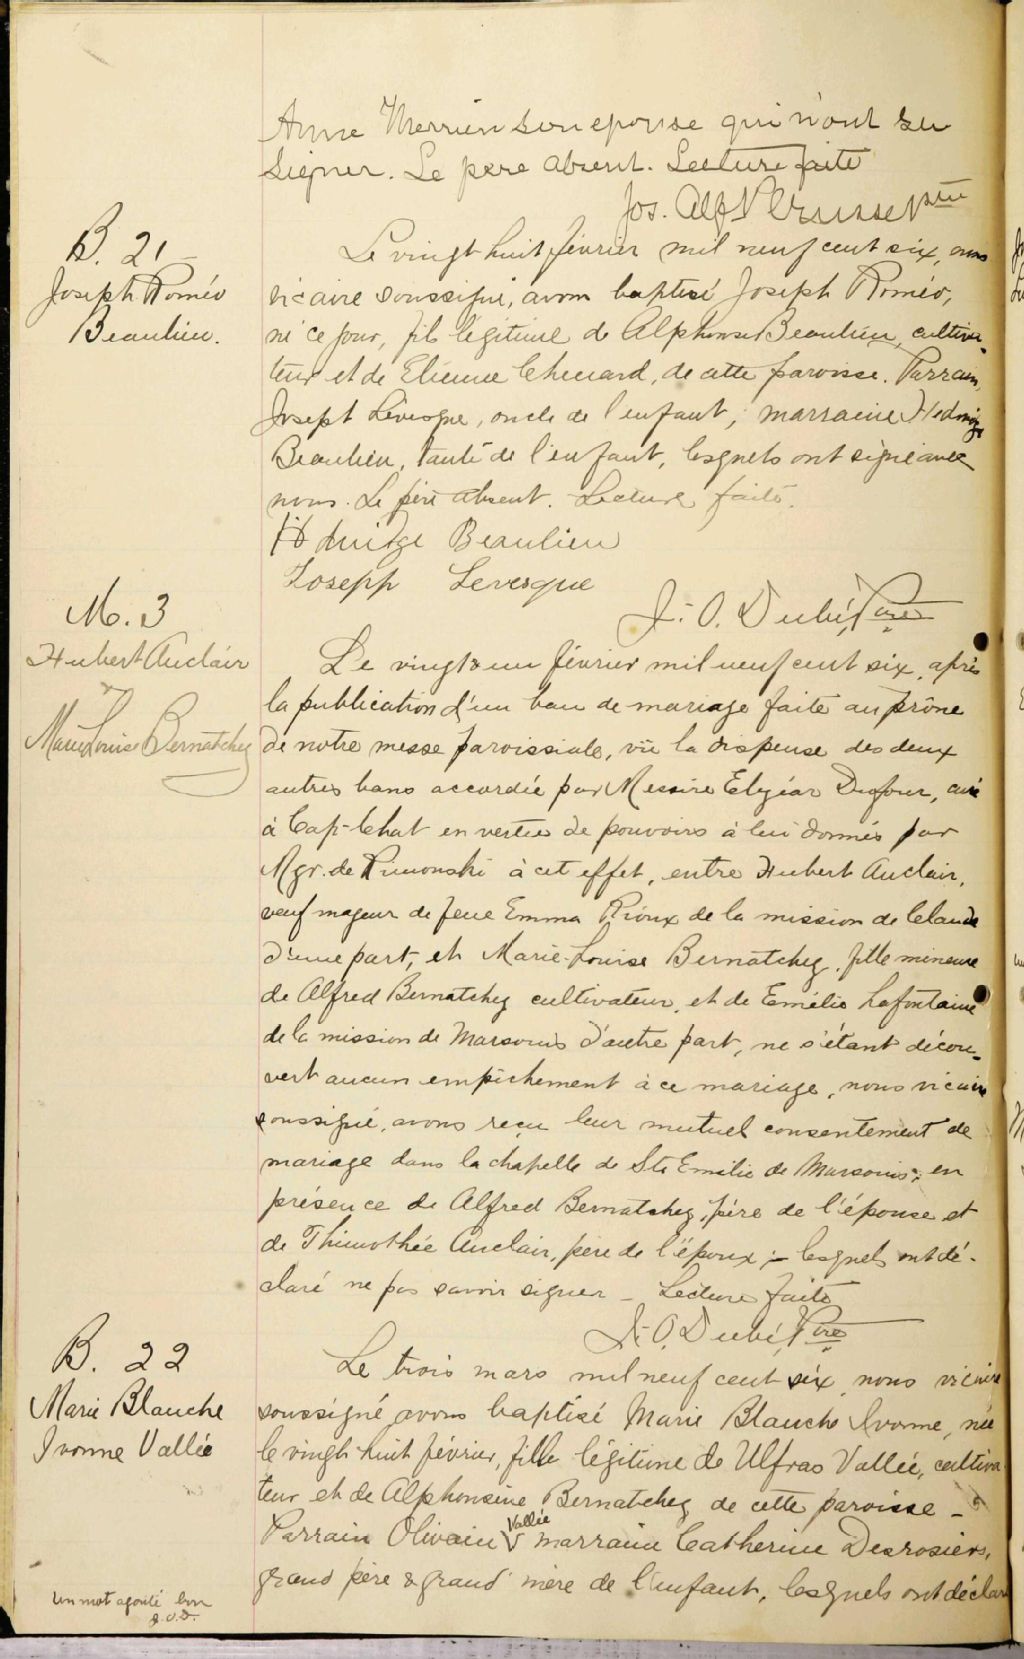 Anne Merrien son epouse qui n'ont su
signer. Le pere absent. Lecture faite
Jos. Alf.
B. 21
Joseph Roméo
Beaulieu.
Le vingt-huit février mil neuf cent six, nous
vicaire soussigné, avons baptisé Joseph Roméo,
né ce jour, fils légitime de Alphonse Beaulieu, cultiva-
teur et de Elienne Chenard, de cette paroisse. Parrain,
Joseph Lévesque, oncle de l'enfant, marraine Hedwige
Beaulieu, tante de l'enfant, lesquels ont signé avec
nous. Le père absent. Lecture faite.
Beaulieu
Josepp Levesque
J. O. Dubé, Ptre
M. 3
Hubert Auclair
Marie Louise Bernatchez
Le vingt un février mil neuf cent six, après
la publication d'un ban de mariage faite au prône
de notre messe paroissiale, vu la dispense des deux
autres bans accordée par Messire Elzéar Dufour, curé
à Cap-Chat en vertu de pouvoirs à lui donnés par
Mgr. de Rimouski à cet effet, entre Hubert Auclair,
veuf majeur de feue Emma Rioux de la mission de
d'une part, et Marie-Louise Bernatchez, fille mineure
de Alfred Bernatchez cultivateur, et de Emélie Lafontaine
de la mission de Marsouis d'autre part, ne s'étant décou-
vert aucun empêchement à ce mariage, nous vicaire
soussigné, avons reçu leur mutuel consentement de
mariage dans la chapelle de Ste Emilie de Marsouis; en
présence de Alfred Bernatchez, père de l'épouse et
de Thimothée Auclair, père de l'époux; - lesquels ont dé-
claré ne pas savoir signer - Lecture faite
J. O. Dubé, Ptre
B. 22
Marie Blanche
Ivonne Vallée
Le trois mars mil neuf cent six, nous vicaire
soussigné avons baptisé Marie Blanche Ivonne, née
le vingt-huit février, fille légitime de Ulfras Vallée, cultiva-
teur et de Alphonsine Bernatchez de cette paroisse -
Parrain Olivain Vallée marraine Catherine Desrosiers,
grand père & grand mère de l'enfant, lesquels ont déclaré
un mot ajouté bon
J.O.D.